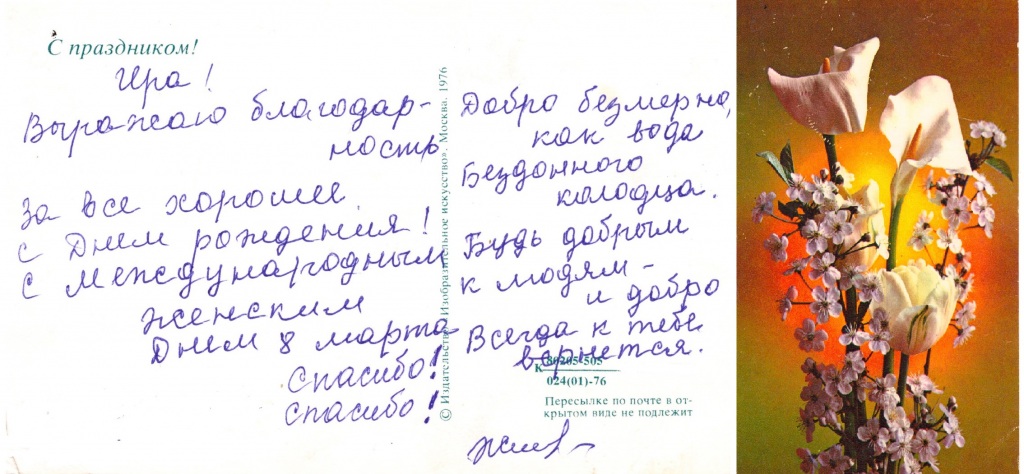 С праздником!
Ира!
Выражаю благодар-
ность
За все хорошее
с Днем рождения!
с Международным
женским
Днем 8 марта
Спасибо!
Спасибо!
© Издательство «Изобразительное искусство». Москва. 1976
Добро безмерно,
как вода
Бездонного
колодца.
Будь добрым
к людям –
и добро
Всегда к тебе
вернется.
К 80205-505
024(01)-76
Пересылке по почте в от-
крытом виде не подлежит